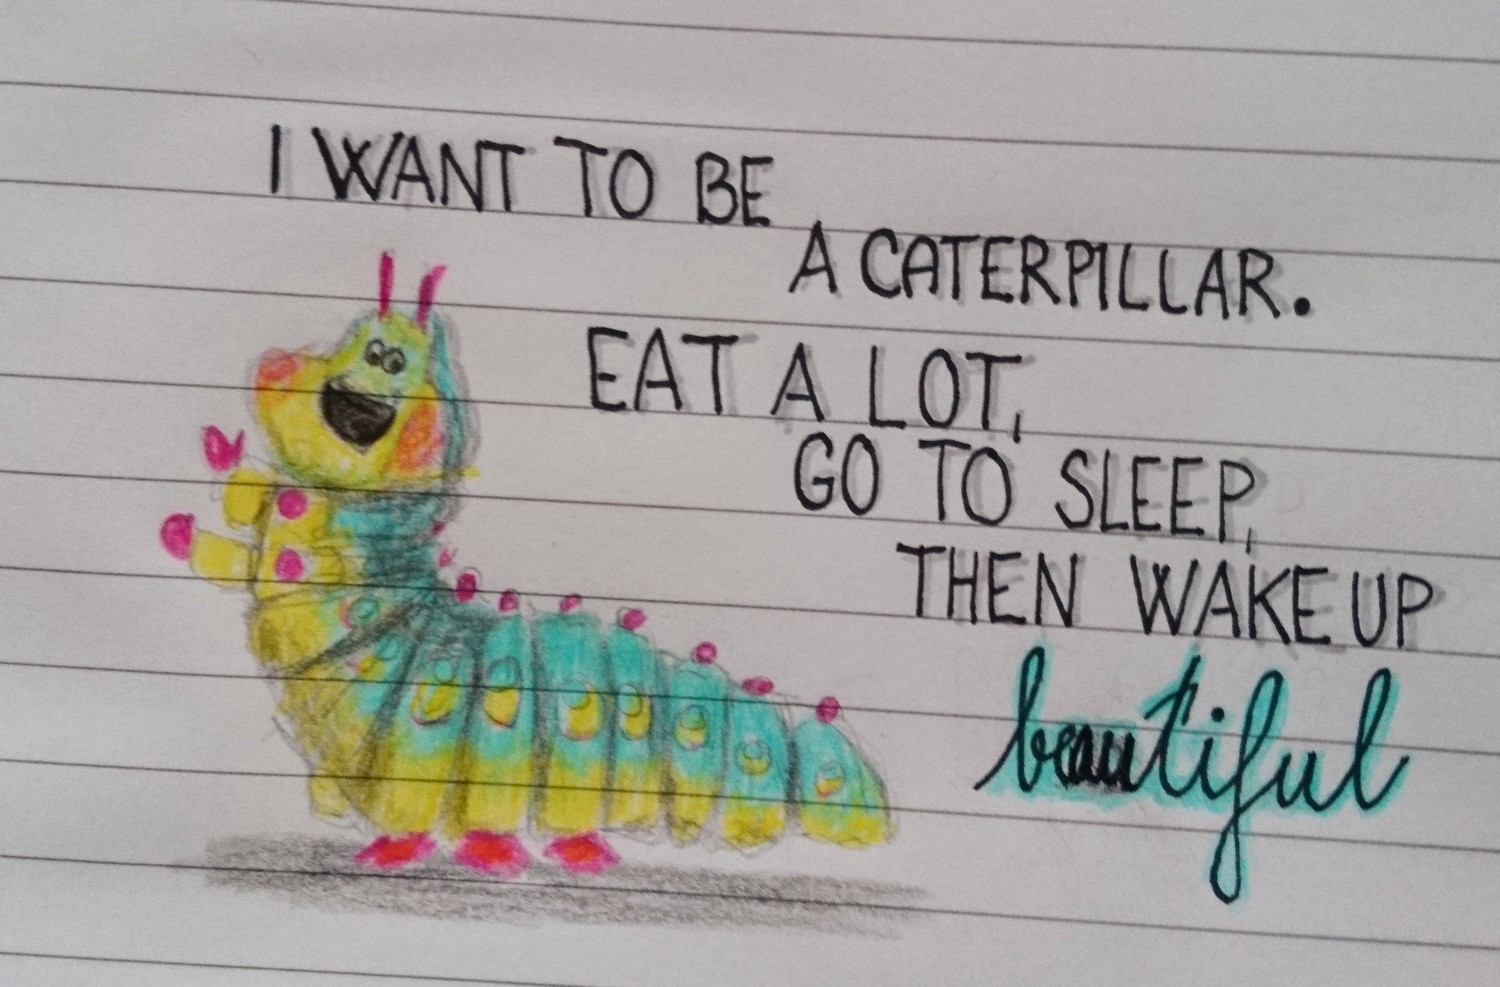 I WANT TO BE
A CATERPILLAR.
EAT A LOT,
GO TO SLEEP,
THEN WAKE UP
beautiful